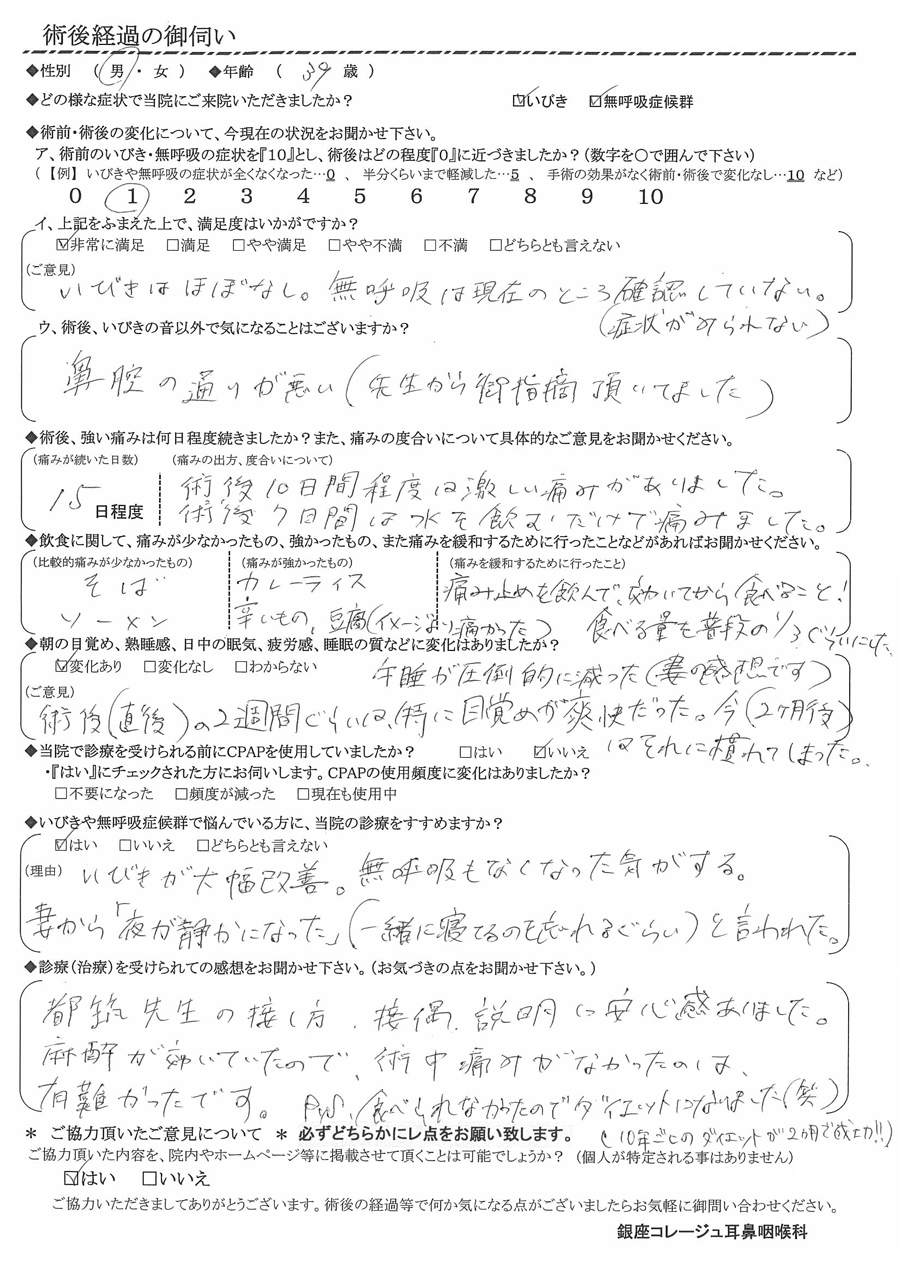 術後経過の御伺い
◆性別 ( 男 ・ 女 ) ◆年齢 ( 39 歳 )
◆どの様な症状で当院にご来院いただきましたか? ☑いびき ☑無呼吸症候群
◆術前・術後の変化について、今現在の状況をお聞かせ下さい。
ア、術前のいびき・無呼吸の症状を『10』とし、術後はどの程度『0』に近づきましたか?(数字を〇で囲んで下さい)
(【例】 いびきや無呼吸の症状が全くなくなった…0 、 半分くらいまで軽減した…5 、 手術の効果がなく術前・術後で変化なし…10 など)
0 1 2 3 4 5 6 7 8 9 10
イ、上記をふまえた上で、満足度はいかがですか?
☑非常に満足 □満足 □やや満足 □やや不満 □不満 □どちらとも言えない
(ご意見)
いびきはほぼなし。無呼吸は現在のところ確認していない。
(症状がみられない)
ウ、術後、いびきの音以外で気になることはございますか?
鼻腔の通りが悪い(先生から御指摘頂いてました)
◆術後、強い痛みは何日程度続きましたか?また、痛みの度合いについて具体的なご意見をお聞かせください。
(痛みが続いた日数) (痛みの出方、度合いについて)
15 日程度
術後10日間程度は激しい痛みがありました。
術後7日間は水を飲むだけで痛みました。
◆飲食に関して、痛みが少なかったもの、強かったもの、また痛みを緩和するために行ったことなどがあればお聞かせください。
(比較的痛みが少なかったもの) (痛みが強かったもの) (痛みを緩和するために行ったこと)
そば カレーライス 痛み止めを飲んで、効いてから食べること!
ソーメン 辛いもの、豆腐(イメージより痛かった) 食べる量も普段の1/3ぐらいにした
◆朝の目覚め、熟睡感、日中の眠気、疲労感、睡眠の質などに変化はありましたか?
☑変化あり □変化なし □わからない 午睡が圧倒的に減った(妻の感想です)
(ご意見)
術後(直後)の2週間ぐらいは、特に目覚めが爽快だった。今(2ヶ月後)
はそれに慣れてしまった。
◆当院で診療を受けられる前にCPAPを使用していましたか? □はい ☑いいえ
・『はい』にチェックされた方にお伺いします。CPAPの使用頻度に変化はありましたか?
□不要になった □頻度が減った □現在も使用中
◆いびきや無呼吸症候群で悩んでいる方に、当院の診療をすすめますか?
☑はい □いいえ □どちらとも言えない
(理由)
いびきが大幅改善。無呼吸もなくなった気がする。
妻から「夜が静かになった」(一緒に寝てるのを忘れるぐらい)と言われた。
◆診療(治療)を受けられての感想をお聞かせ下さい。(お気づきの点をお聞かせ下さい。)
都筑先生の接し方、接偶、説明に安心感ありました。
麻酔が効いていたので、術中痛みがなかったのは、
有難かったです。 P.S. 食べられなかったのでダイエットになりました(笑)
(10年ごしのダイエットが2ヵ月で成功!!)
* ご協力頂いたご意見について * 必ずどちらかにレ点をお願い致します。
ご協力頂いた内容を、院内やホームページ等に掲載させて頂くことは可能でしょうか? (個人が特定される事はありません)
☑はい □いいえ
ご協力いただきましてありがとうございます。術後の経過等で何か気になる点がございましたらお気軽に御問い合わせください。
銀座コレージュ耳鼻咽喉科